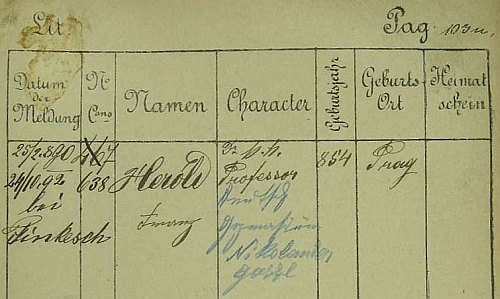 Lit.
Pag. 103 u.
Datum der Meldung
N° Cons
Namen
Character
Geburtsjahr
Geburts-Ort
Heimat schein
25/2.890 467
24/10.92 638
bei
Pinkesch
Herold
Franz
Professor
Deutsch
Gymnasium
Nikolander
Gasse
854
Prag